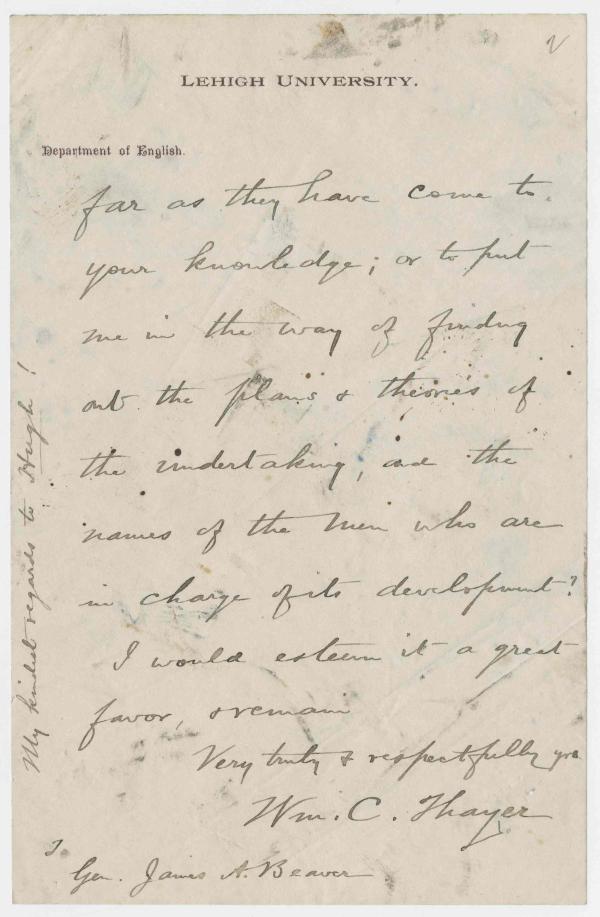 2
LEHIGH UNIVERSITY.
Department of English.
far as they have come to
your knowledge; or to put
me in the way of finding
out the plans & theories of
the undertaking, and the
names of the men who are
in charge of its development?
I would esteem it a great
favor, & remain
Very truly & respectfully yrs
Wm. C. Thayer
To
Gen. James A. Beaver
My kindest regards to Hugh!